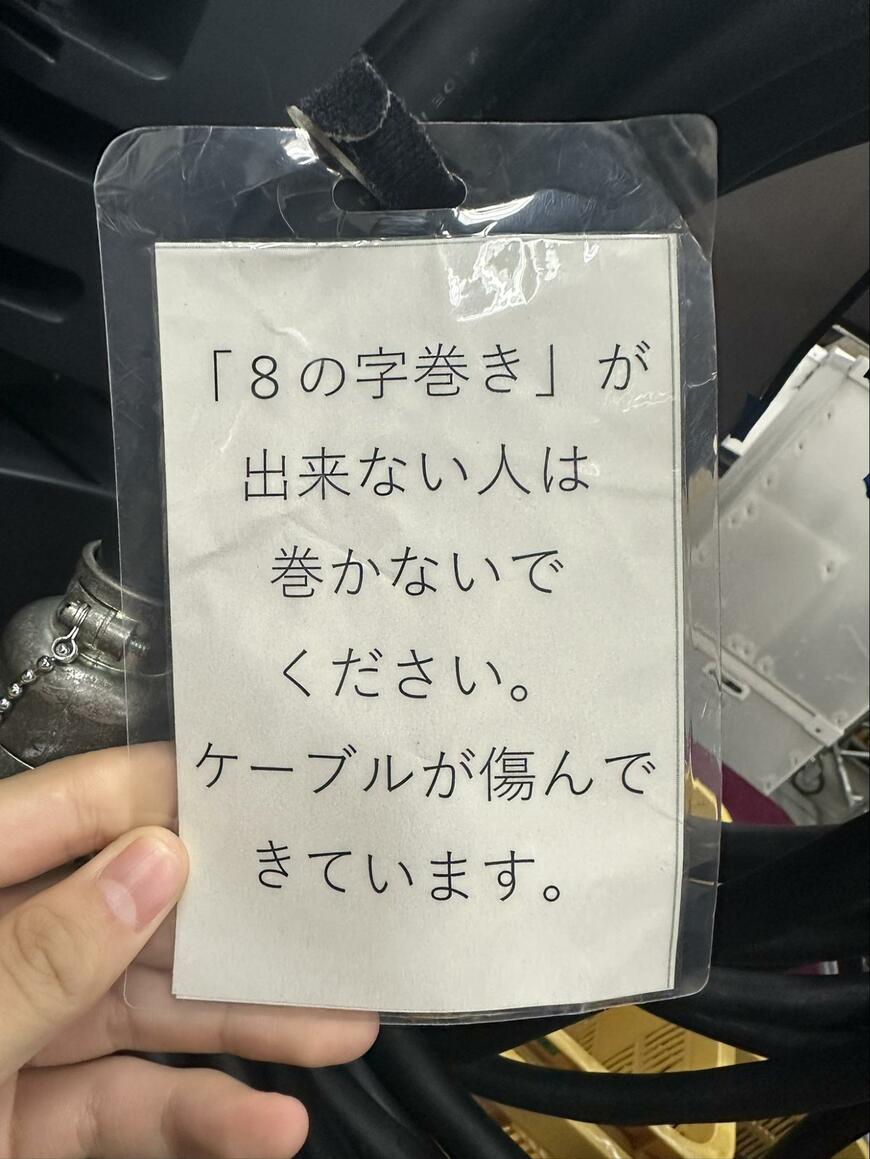 「８の字巻き」が
出来ない人は
巻かないで
ください。
ケーブルが傷んで
きています。